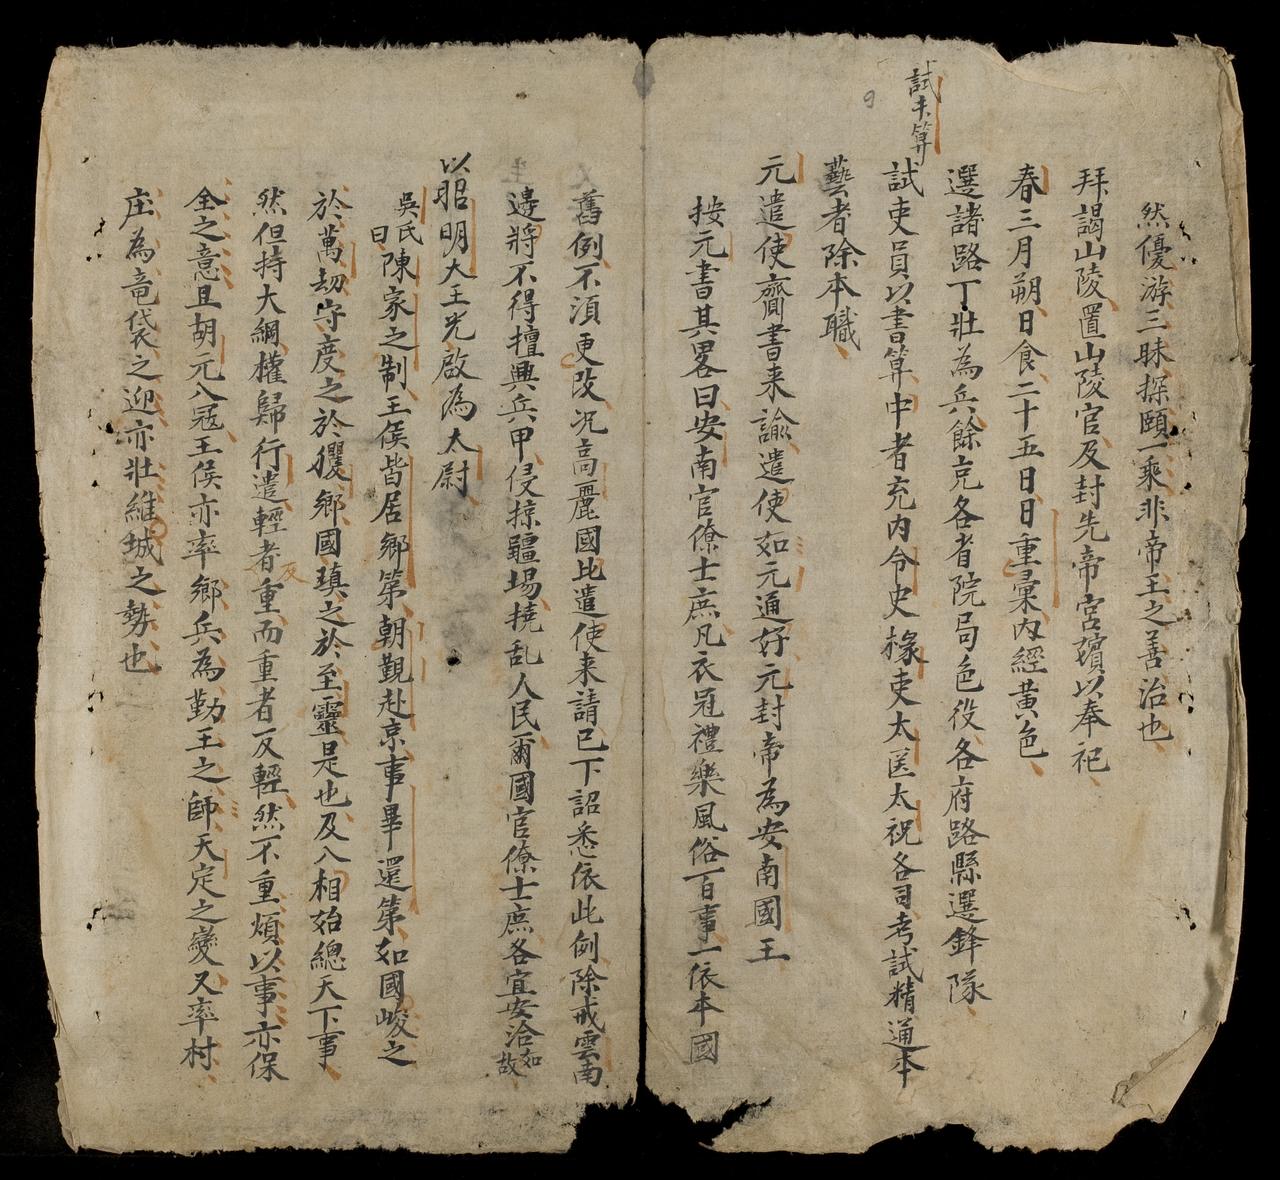 然優游三昧探頤一乘非帝王之善治也
拜謁山陵置山陵官及封先帝宮嬪以奉祀
春三月朔日食二十五日日重暈內經黃色
選諸路丁壯為兵餘充各省院局色役各府路縣選鋒隊
試吏員以書算中者充內令史掾吏太医太祝各司考試精通本
試書算
藝者除本職
元遣使齎書来諭遣使如元通好元封帝為安南國王
按元書其畧曰安南官僚士庶凡衣冠禮樂風俗百事一依本國
舊例不須更改况高麗國比遣使来請已下詔悉依此例除戒雲南
邊將不得擅興兵甲侵掠疆場撓乱人民爾國官僚士庶各宜安治如故
以昭明大王光啟為太尉
吳氏曰陳家之制王侯皆居鄉第朝覲赴京事畢還第如國峻之
於萬刼守度之於㹛鄉國瑱之於至靈是也及入相始總天下事
然但持大綱權歸行遣輕者反重而重者反輕然不重煩以事亦保
全之意且胡元入冦王侯亦率鄉兵為勤王之師天定之變又率村
庄為竜袋之迎亦壯維城之勢也
9